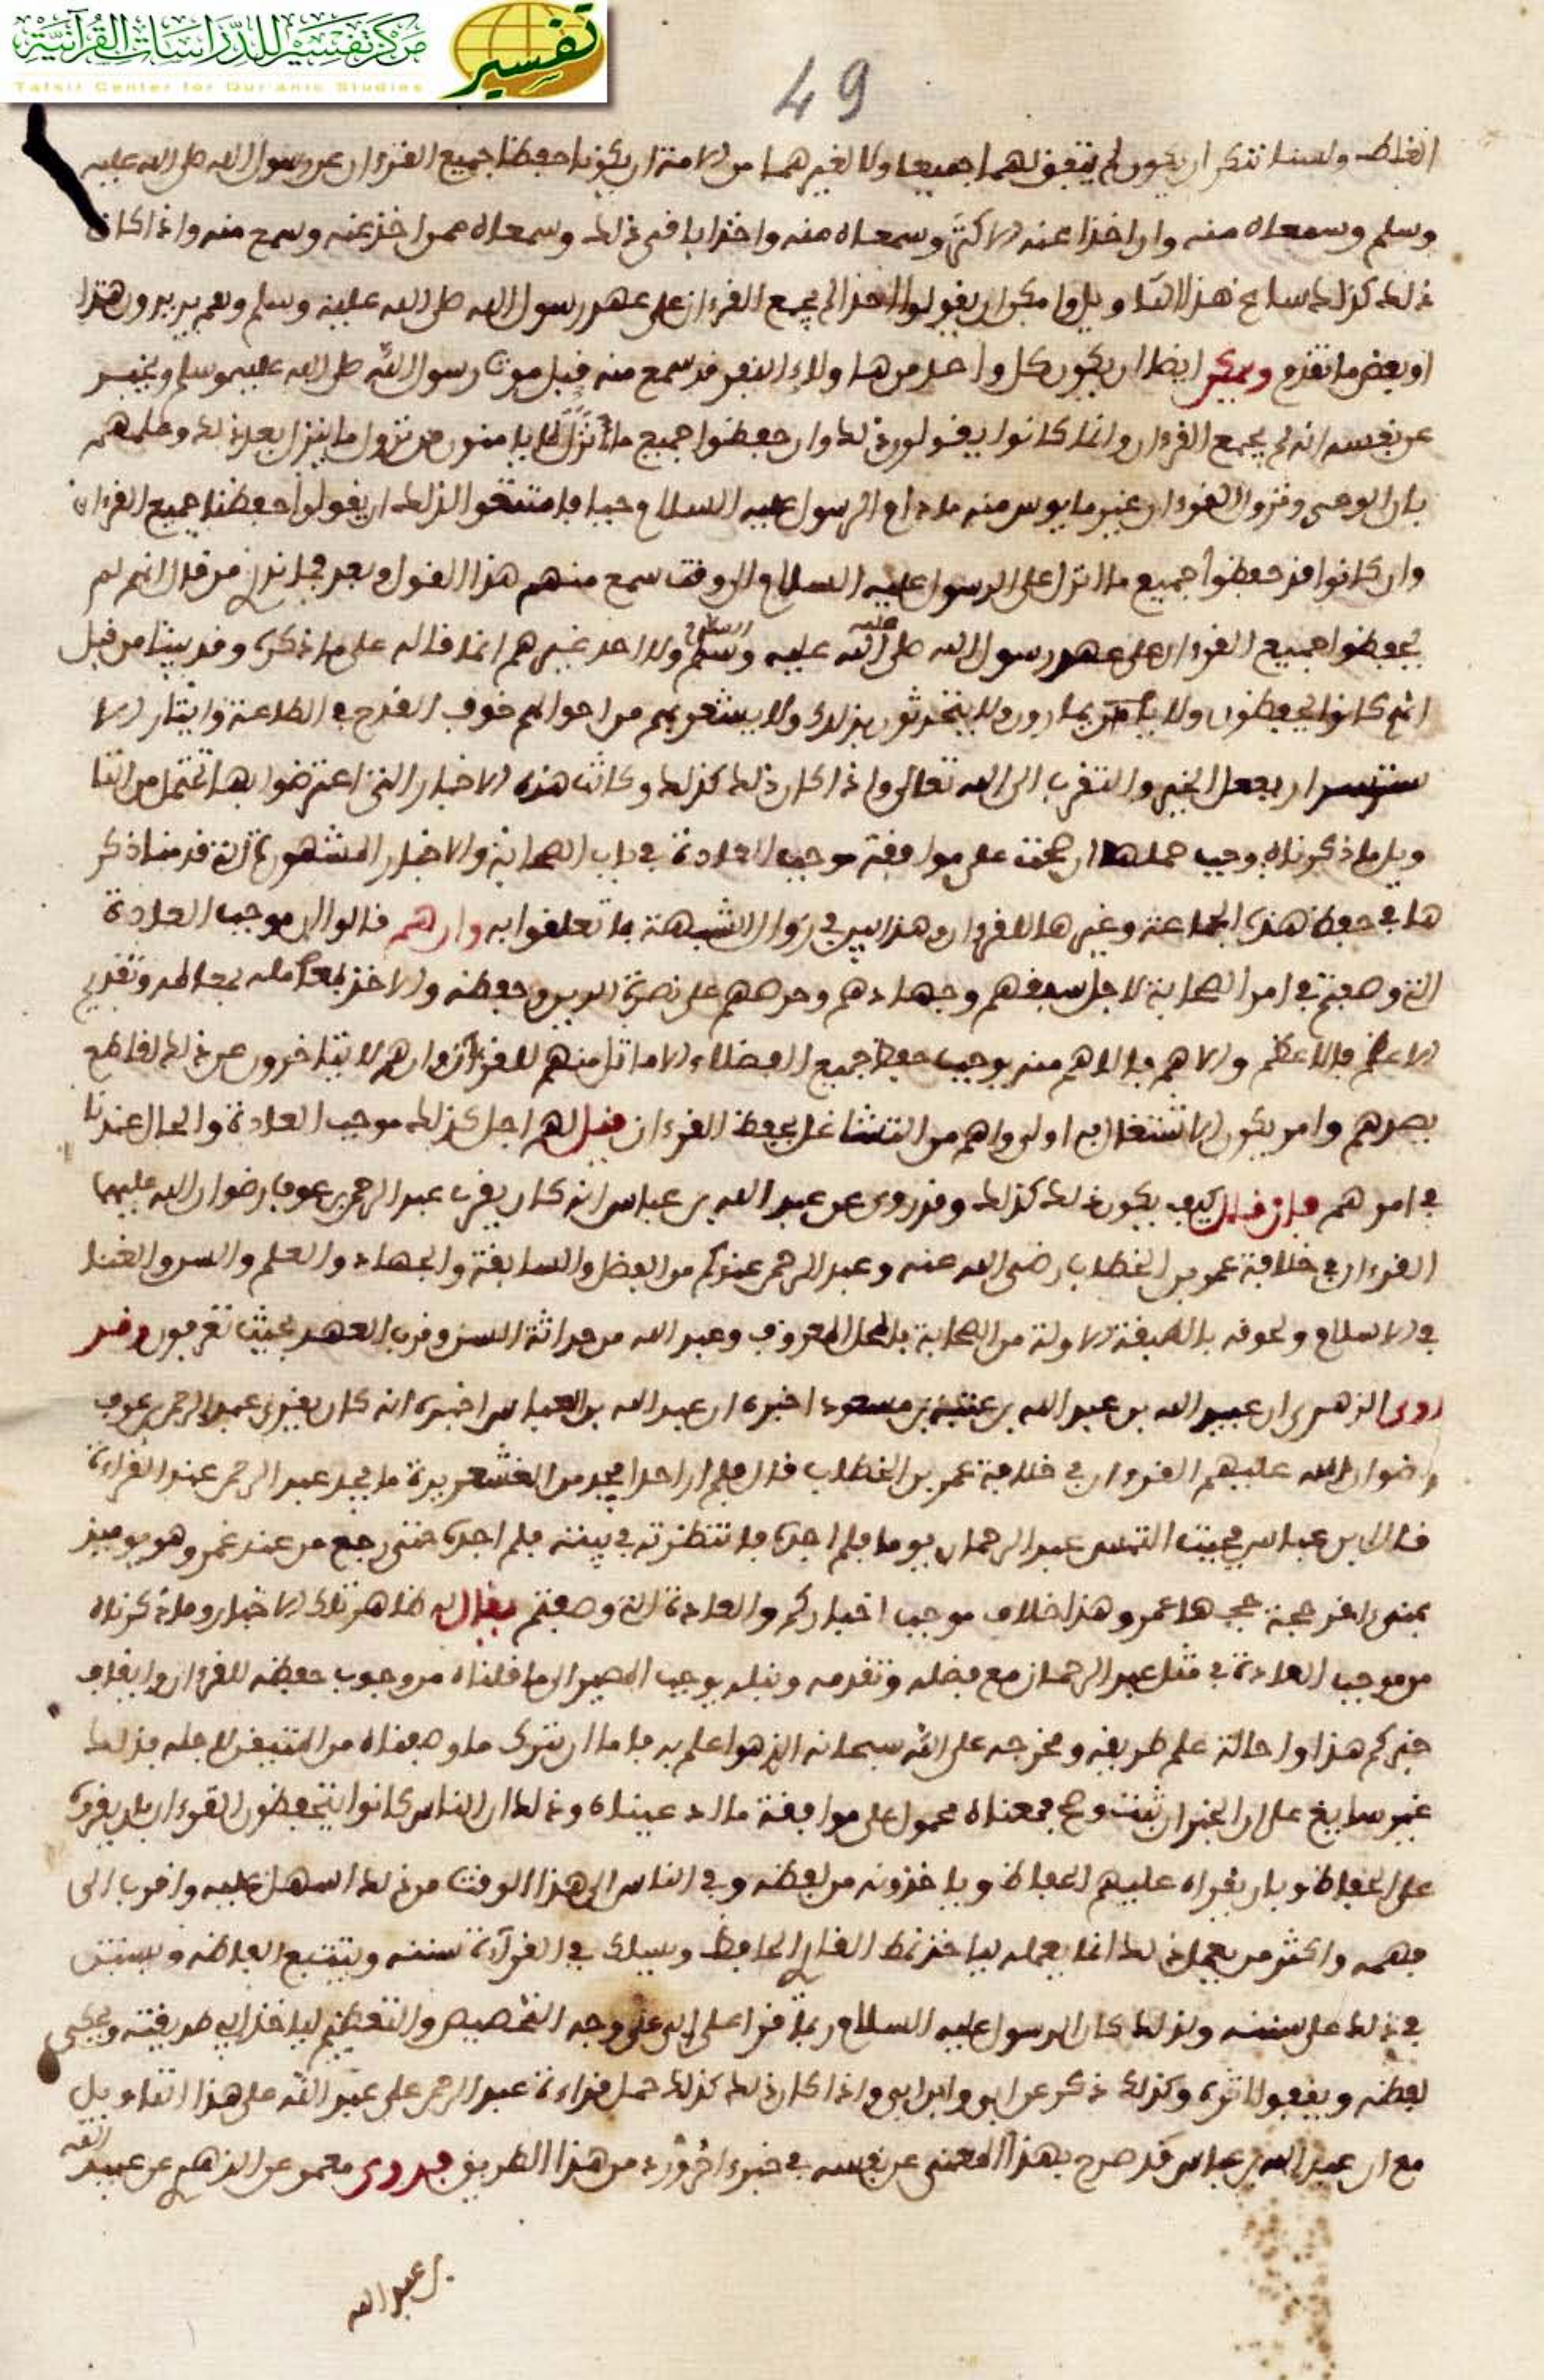 مركز تفسير للدراسات القرآنية
Tafsir Center for Qur'anic Studies
تفسير
49
الغلط ولسنا ننكر ان يكون لم يتفق لهما جميعا ولا لغيرهما من الامة ان يكونا حفظا جميع القرءان عن رسول الله صلى الله عليه
وسلم وسمعاه منه وان اخذا عنه الاكثر وسمعاه منه واخذا باقي ذلك وسمعاه ممن اخذ عنه وسمع منه واذا كان
ذلك كذلك ساغ هذا التاويل وامكن ان يقولوا لم يجمع القرءان على عهد رسول الله صلى الله عليه وسلم وهم يريدون هذا
او بعض ما تقدم ويمكن ايضا ان يكون كل واحد من هاولاء النفر قد سمع منه قبل موت رسول الله صلى الله عليه وسلم ويخبر
عن نفسه انه لم يجمع القرءان وانما كانوا يقولون ذلك وان حفظوا جميع ما انزل لانهم لا يامنون من نزول ما ينزل بعد ذلك وعلمهم
بان الوحي ونزول القرءان غير مايوس منه ما دام الرسول عليه السلام حيا فامتنعوا لذلك ان يقولوا حفظنا جميع القرءان
وان كانوا قد حفظوا جميع ما انزل على الرسول عليه السلام الى وقت سمع منهم هذا القول وبعد فما نذر من قال انهم لم
يحفظوا جميع القرءان على عهد رسول الله صلى الله عليه وسلم ولا احد غيرهم انما قاله على ما ذكره وقد بينا من قبل
انهم كانوا يحفظون ولا يتحدثون بذلك ولا يشعر بهم من احوالهم خوف القدح في الطاعة وايثار الا
ستسرار بفعل الخير والتقرب الى الله تعالى واذا كان ذلك كذلك وكانت هذه الاخبار التي اعترضوا بها تحتمل من التا
ويل ما ذكرناه وجب حملها ان صحت على موافقة موجب العادة في باب الصحابة والاخبار المشهورة التي قدمنا ذكر
ها في حفظ هذه الجماعة وغيرها للقرءان وهذا بين في زوال الشبهة بما تعلقوا به وان هم قالوا ان موجب العادة
التي وصفتم في امر الصحابة لاجل سبقهم وجهادهم وحرصهم على نصرة الدين وحفظه والاخذ لمعاملة وتقديم
الاعظم فالاعظم والاهم فالاهم منه يوجب حفظ جميع الفضلاء الاماثل منهم للقرءان وانهم لا يتاخرون عن ذلك لقاطع
يصدهم وامر يكون الاشتغال به اولى واهم من التشاغل بحفظ القرءان قيل لهم اجل كذلك موجب العادة والحال عندنا
في امرهم فان قال كيف يكون ذلك كذلك وقد روي عن عبد الله بن عباس انه كان يقرئ عبد الرحمن بن عوف رضوان الله عليهما
القرءان في خلافة عمر بن الخطاب رضي الله عنه وعبد الرحمن عندكم من الفضل والسابقة والجهاد والعلم والسن والغنا
في الاسلام ولحوقه بالطبقة الاولة من الصحابة بالمحل المعروف وعبد الله من حداثة السن وقرب العهد بحيث تعرفون وقد
روى الزهري ان عبيد الله بن عبد الله بن عتبة بن مسعود اخبره ان عبد الله بن العباس اخبره انه كان يقرئ عبد الرحمن بن عوف
رضوان الله عليهم القرءان في خلافة عمر بن الخطاب قال فلم ار احدا يجد من القشعريرة ما يجد عبد الرحمن عند القراءة
قال ابن عباس فجيت التمس عبد الرحمان يوما فلم اجده فانتظرته في بيته فلم اجده حتى رجع من عند عمر وهو يوميذ
بمنى اخر حجة حجها عمر وهذا خلاف موجب اخباركم والعادة التي وصفتم يقال له ظاهر تلك الاخبار وما ذكرناه
من موجب العادة في مثل عبد الرحمان مع فضله وتقدمه ونبله يوجب المصير الى ما قلناه من وجوب حفظه للقرءان وايقاف
خبركم هذا واحالة علم طريقه ومخرجه على الله سبحانه الذي هو اعلم به فاما ان يترك ما وصفناه من المتيقن لاجله فذلك
غير سايغ على ان الخبر ان ثبت وصح فمعناه محمول على موافقة ما ادعيناه وذلك ان الناس كانوا يتحفظون القرءان بان يقرءوا
على الحفاظ وبان يقراه عليهم الحفاظ وياخذونه من لفظه وفي الناس الى هذا الوقت من ذلك اسهل عليه واقرب الى
فهمه واكثر من يعمل ذلك انما يعمله لياخذ نمط القارئ الحافظ ويسلك في القرآءة سننه ويتتبع الفاظه ويستن
في ذلك على سننه ولذلك كان الرسول عليه السلام ربما قرا على ابي على وجه التخصيص والتعظيم لياخذ ابي طريقته ويحكي
لفظه ويقفوا اثره وكذلك ذكر عن ابي وابن ابي واذا كان ذلك كذلك حمل قراءة عبد الرحمن على عبد الله على هذا التاويل
مع ان عبد الله بن عباس قد صرح بهذا المعنى عن نفسه في خبر اخر ورد من هذا الطريق فروى معمر عن الزهري عن عبيد الله
بن عبد الله